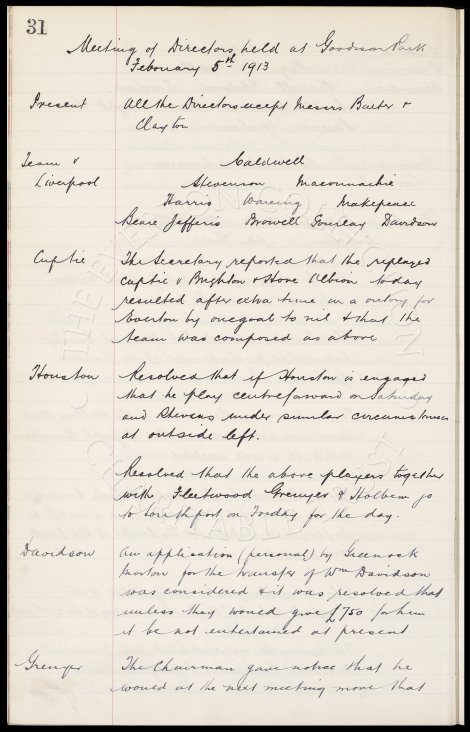 31
Meeting of Directors held at Goodison Park
February 5th 1913
Present All the Directors except Messrs Baxter &
Clayton
Team v Caldwell
Liverpool Stevenson Macconnachie
Harris Wareing Makepeace
Beare Jefferis Browell Gourlay Davidson
Cuptie The Secretary reported that the replayed
cuptie v Brighton & Hove Albion today
resulted after extra time in a victory for
Everton by one goal to nil & that the
team was composed as above
Houston Resolved that if Houston is engaged
that he play centre forward on Saturday
and under similar circumstances
at outside left.
Resolved that the above players together
with Fleetwood Grenyer & Holbem go
to Southport on Friday for the day.
Davidson An application (personal) by Greenock
Morton for the transfer of Wm Davidson
was considered & it was resolved that
unless they would give £750 for him
it be not entertained at present
Grenyer The Chairman gave notice that he
would at the next meeting move that